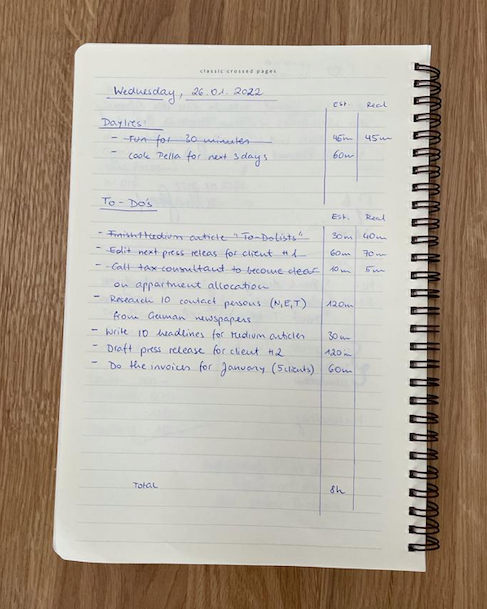 classic crossed pages
Wednesday, 26.01.2022
Est. Real
Daylies:
- run for 30 minutes 45m 45m
- Cook Della for next 3 days 60m
To-Do's
Est. Real
- Finish Medium article "To-Do Lists" 30m 40m
- Edit next press releas for client #1 60m 70m
- Call tax consultant to become clear 10m 5m
on appartment allocation
- Research 10 contact persons (N,E,T) 120m
from German newspapers
- Write 10 headlines for Medium articles 30m
- Draft press release for client #2 120m
- Do the invoices for January (5 clients) 60m
Total 8h